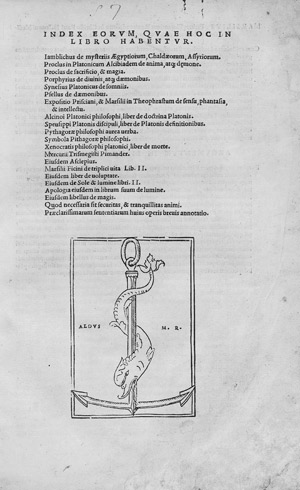 INDEX EORVM, QVAE HOC IN
LIBRO HABENTVR.
Iamblichus de mysteriis Ægyptiorum, Chaldæorum, Assyriorum.
Proclus in Platonicum Alcibiadem de anima, atq; dæmone.
Proclus de sacrificio, & magia.
Porphyrius de diuinis, atq; dæmonibus.
Synesius Platonicus de somniis.
Psellus de dæmonibus.
Expositio Prisciani, & Marsilii in Theophrastum de sensu, phantasia,
& intellectu.
Alcinoi Platonici philosophi, liber de doctrina Platonis.
Speusippi Platonis discipuli, liber de Platonis definitionibus.
Pythagoræ philosophi aurea uerba.
Symbola Pithagoræ philosophi.
Xenocratis philosophi platonici, liber de morte.
Mercurii Trismegisti Pimander.
Eiusdem Asclepius.
Marsilii Ficini de triplici uita Lib. II.
Eiusdem liber de uoluptate.
Eiusdem de Sole & lumine libri. II.
Apologia eiusdem in librum suum de lumine.
Eiusdem libellus de magis.
Quod necessaria sit securitas, & tranquillitas animi.
Præclarissimarum sententiarum huius operis breuis annotatio.
ALDVS M. R.